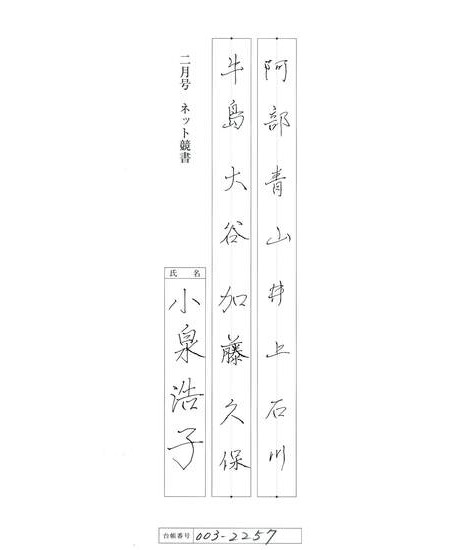 阿部青山井上石川
牛島大谷加藤久保
二月号 ネット競書
氏名
小泉浩子
台帳番号 003-2257